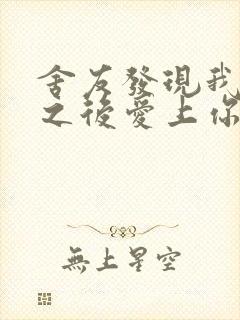 舍友發現我
之後愛上你
無上星空